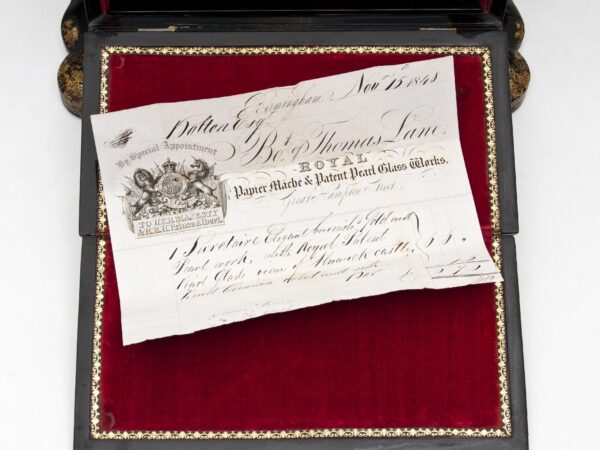 Birmingham Nov 15 1848
Bolton Esq
Bot of Thomas Lane.
By Special Appointment
ROYAL
Papier Mâché & Patent Pearl Glass Works.
TO HER MAJESTY
& H.R.H. Prince Albert.
Great Hampton Street
1 Secretaire Elegant burnish'd Gold and
Pearl work, with Royal Patent
Pearl Glass view of Alnwick castle
Box